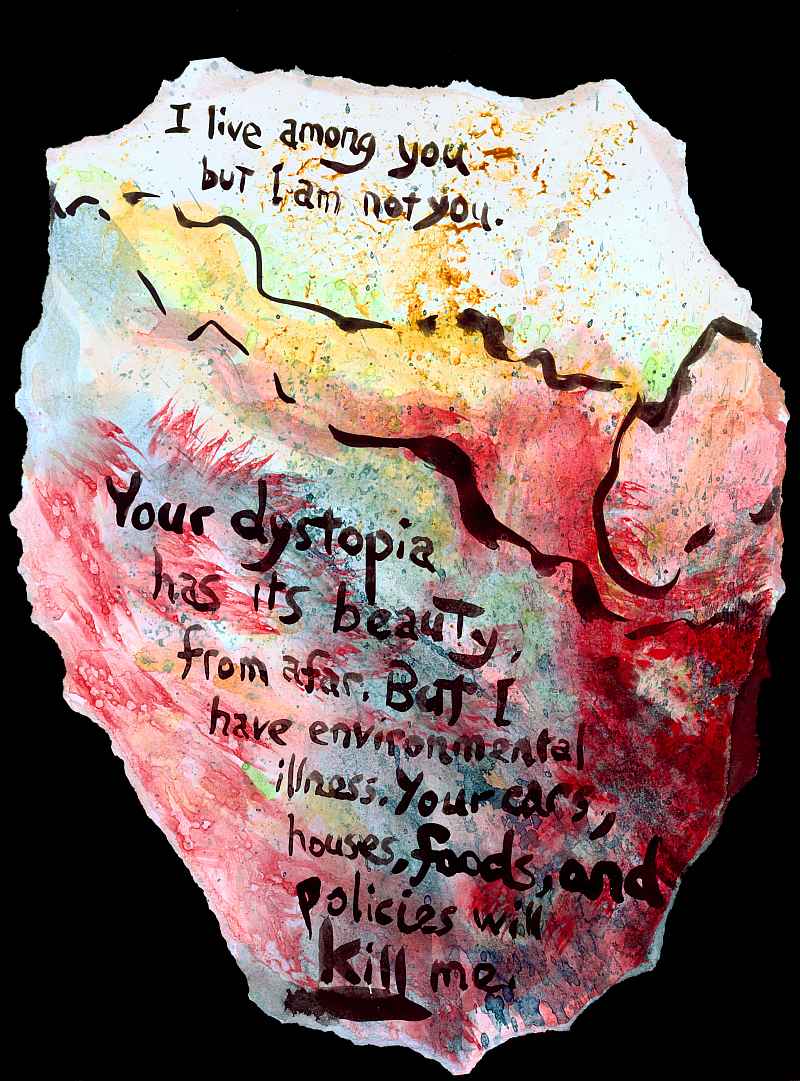 I live among you
but I am not you.
Your dystopia
has its beauty,
from afar. But I
have environmental
illness. Your cars,
houses, foods, and
policies will
kill me.